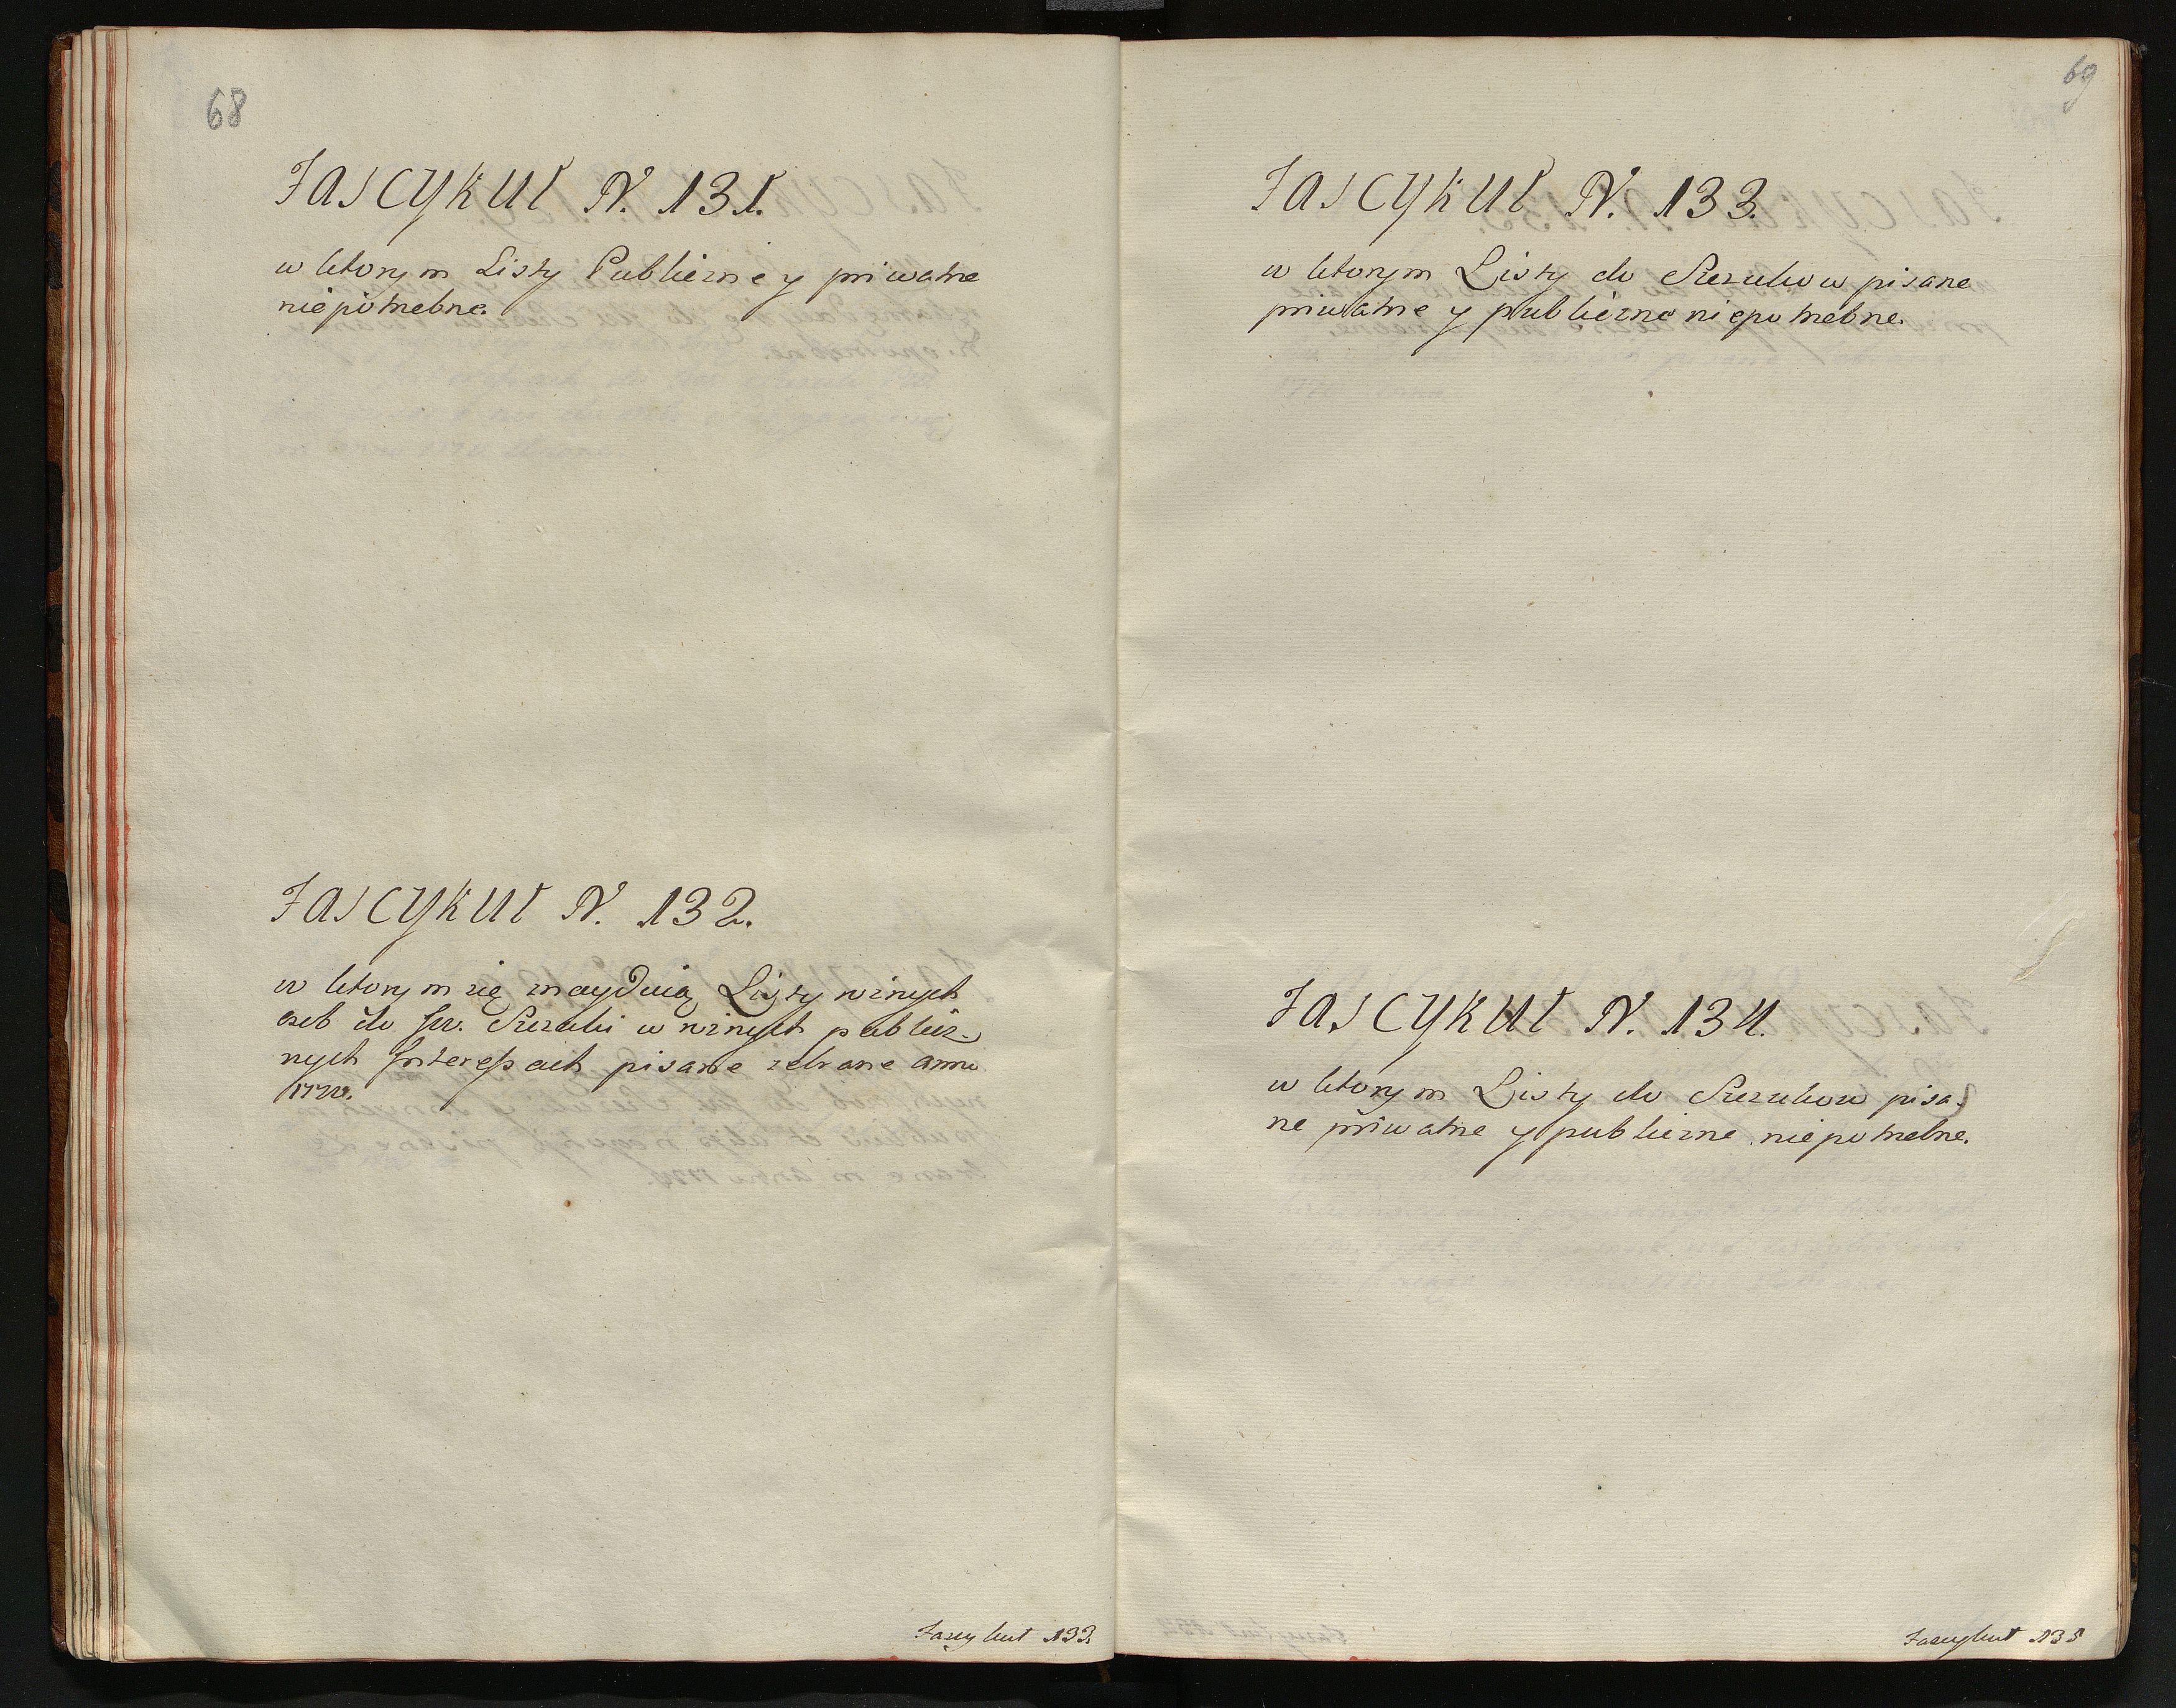 68
FASCYKUŁ N. 131.
w ktorym Listy Publiczne y priwatne
niepotrzebne.
FASCYKUŁ N. 132.
w ktorym się znayduią Listy roznych
oseb do Ur. w roznych publicz-
nych Interessach pisane zebrane anno
Fascykuł 133.
69
FASCYKUŁ N. 133.
w ktorym Listy do pisane
priwatne y publiczne niepotrzebne.
FASCYKUŁ N. 134.
w ktorym Listy do pisa-
ne priwatne y publiczne niepotrzebne.
Fascykuł 135